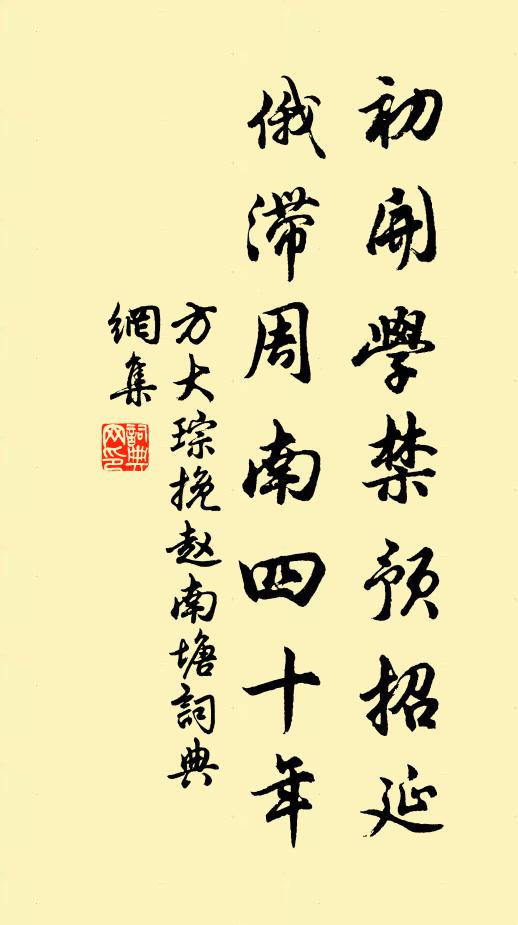 初開學禁預招延
俄滯周南四十年
方大琮挽赵南塘詞典
網集
詞典
网印